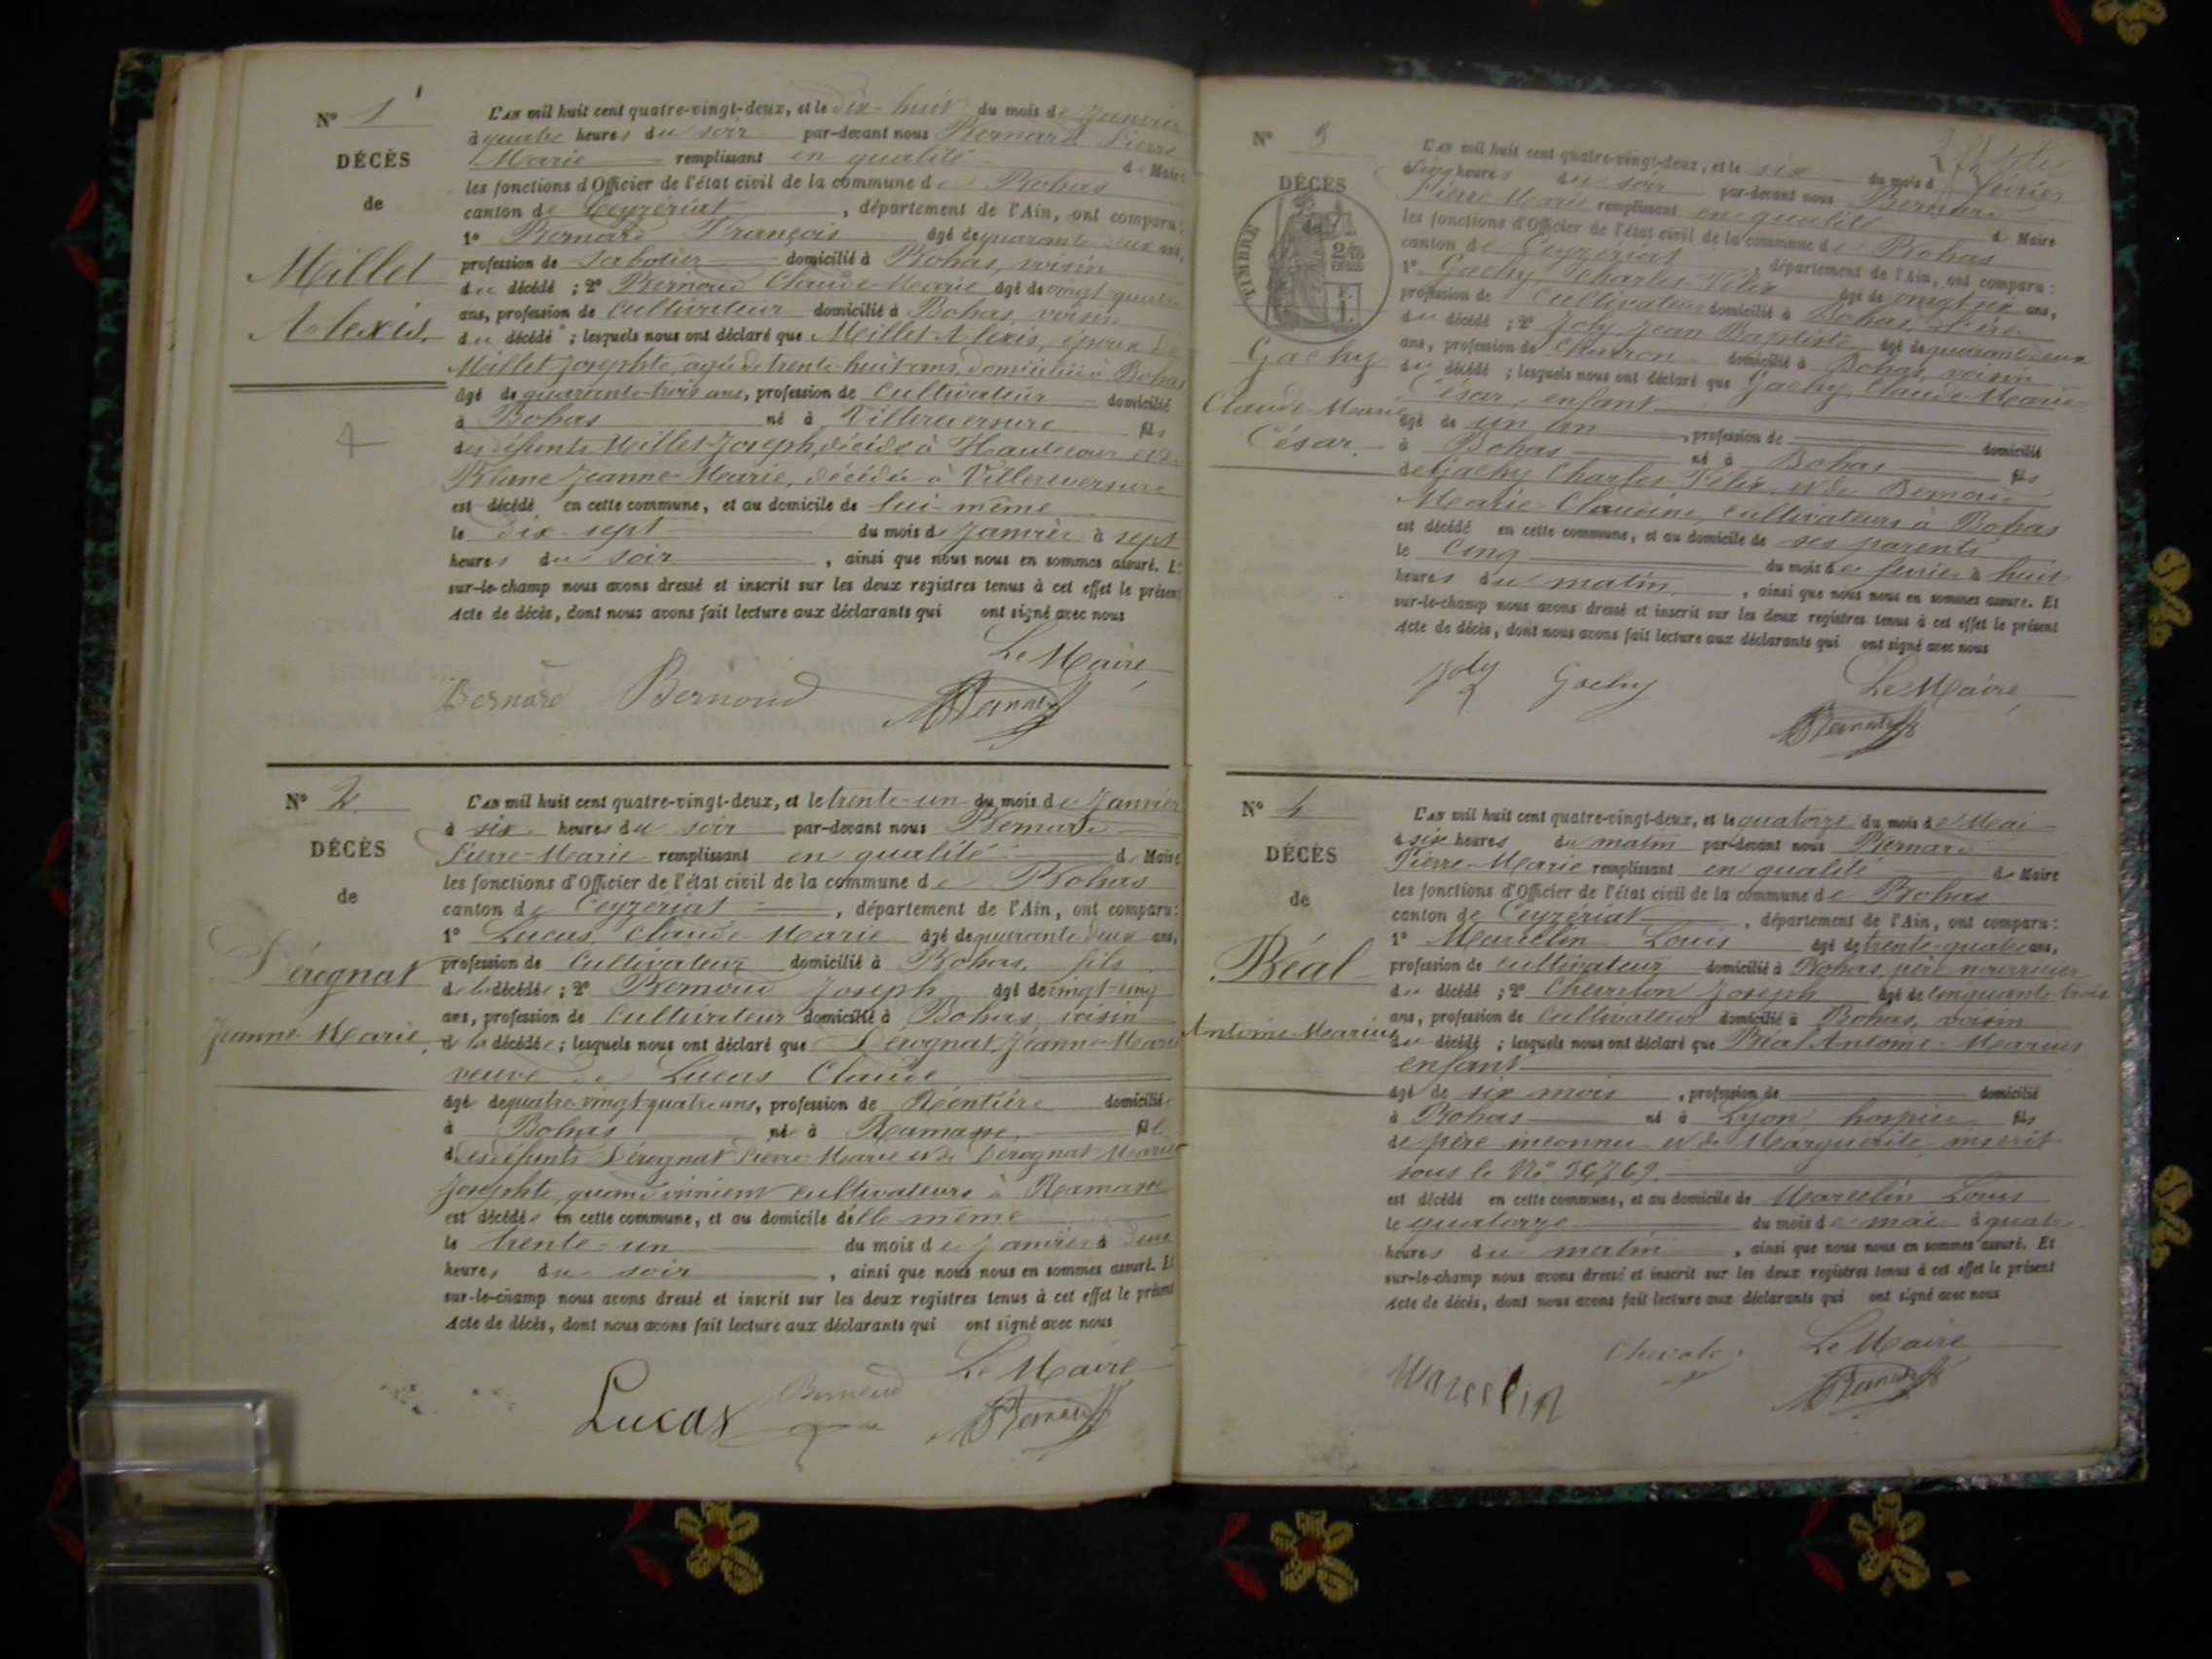 N° 1
DÉCÈS
de
Millet
Alexis
L'AN mil huit cent quatre-vingt-deux, et le dix-huit du mois de Janvier
à quatre heures du soir par-devant nous Bernard Pierre
Marie remplissant en qualité de Maire
les fonctions d'Officier de l'état civil de la commune de Bohas
canton de Ceyzériat, département de l'Ain, ont comparu:
1° Bernard François âgé de quarante deux ans,
profession de Sabotier domicilié à Bohas, voisin
du décédé; 2° Bernoud Claude Marie âgé de vingt quatre
ans, profession de Cultivateur domicilié à Bohas, voisin
du décédé; lesquels nous ont déclaré que Millet Alexis, époux de
Millet Josephte, agée de trente-huit ans, domiciliée à Bohas
âgé de quarante-trois ans, profession de Cultivateur domicilié
à Bohas né à Villereversure fils
des défunts Millet Joseph, décédé à Hautecour et de
Blanc Jeanne-Marie, décédée à Villereversure
est décédé en cette commune, et au domicile de lui-même
le dix-sept du mois de Janvier à sept
heures du soir, ainsi que nous nous en sommes assuré. Et
sur-le-champ nous avons dressé et inscrit sur les deux registres tenus à cet effet le présent
Acte de décès, dont nous avons fait lecture aux déclarants qui ont signé avec nous
Le Maire,
Bernard Bernoud Bernard
N° 2
DÉCÈS
de
Dérognat
Jeanne-Marie
L'AN mil huit cent quatre-vingt-deux, et le trente-un du mois de Janvier
à six heures du soir par-devant nous Bernard
Pierre-Marie remplissant en qualité de Maire
les fonctions d'Officier de l'état civil de la commune de Bohas
canton de Ceyzériat, département de l'Ain, ont comparu:
1° Lucas Claude-Marie âgé de quarante deux ans,
profession de Cultivateur domicilié à Bohas, fils
de la décédée; 2° Bernoud Joseph âgé de vingt-cinq
ans, profession de Cultivateur domicilié à Bohas, voisin
de la décédée; lesquels nous ont déclaré que Dérognat Jeanne-Marie
veuve de Lucas Claude
âgé de quatre-vingt-quatre ans, profession de Rentière domiciliée
à Bohas née à Ramasse fille
des défunts Dérognat Pierre-Marie et de Dérognat Marie
Josephte, quand vivaient cultivateurs à Ramasse
est décédée en cette commune, et au domicile d'elle même
le trente-un du mois de Janvier à deux
heures du soir, ainsi que nous nous en sommes assuré. Et
sur-le-champ nous avons dressé et inscrit sur les deux registres tenus à cet effet le présent
Acte de décès, dont nous avons fait lecture aux déclarants qui ont signé avec nous
Le Maire
Lucas Bernoud Bernard
N° 3
DÉCÈS
de
TIMBRE
Gachy
Claude-Marie
César
L'AN mil huit cent quatre-vingt-deux, et le six du mois de février
à cinq heures du soir par-devant nous Bernard
Pierre Marie remplissant en qualité de Maire
les fonctions d'Officier de l'état civil de la commune de Bohas
canton de Ceyzériat, département de l'Ain, ont comparu:
1° Gachy Charles Félix âgé de vingt six ans,
profession de Cultivateur domicilié à Bohas, Père
du décédé; 2° Joly Jean Baptiste âgé de quarante deux
ans, profession de Charron domicilié à Bohas, voisin
du décédé; lesquels nous ont déclaré que Gachy Claude-Marie
César, enfant
âgé de un an, profession de domicilié
à Bohas né à Bohas fils
de Gachy Charles Félix et de Bernard
Marie Claudine, cultivateurs à Bohas
est décédé en cette commune, et au domicile de ses parents
le cinq du mois de fevrier à huit
heures du matin, ainsi que nous nous en sommes assuré. Et
sur-le-champ nous avons dressé et inscrit sur les deux registres tenus à cet effet le présent
Acte de décès, dont nous avons fait lecture aux déclarants qui ont signé avec nous
Joly Gachy Le Maire,
Bernard
N° 4
DÉCÈS
de
Béal
Antoine Marius
L'AN mil huit cent quatre-vingt-deux, et le quatorze du mois de Mai
à six heures du matin par-devant nous Bernard
Pierre-Marie remplissant en qualité de Maire
les fonctions d'Officier de l'état civil de la commune de Bohas
canton de Ceyzériat, département de l'Ain, ont comparu:
1° Marcelin Louis âgé de trente-quatre ans,
profession de cultivateur domicilié à Bohas, père nourricier
du décédé; 2° Joseph âgé de cinquante-trois
ans, profession de Cultivateur domicilié à Bohas, voisin
du décédé; lesquels nous ont déclaré que Béal Antoine-Marius
enfant
âgé de six mois, profession de domicilié
à Bohas né à Lyon, hospice fils
de père inconnu et de Marguerite, inscrit
sous le N° 36769
est décédé en cette commune, et au domicile de Marcelin Louis
le quatorze du mois de mai à quatre
heures du matin, ainsi que nous nous en sommes assuré. Et
sur-le-champ nous avons dressé et inscrit sur les deux registres tenus à cet effet le présent
Acte de décès, dont nous avons fait lecture aux déclarants qui ont signé avec nous
Le Maire
Marcelin Bernard